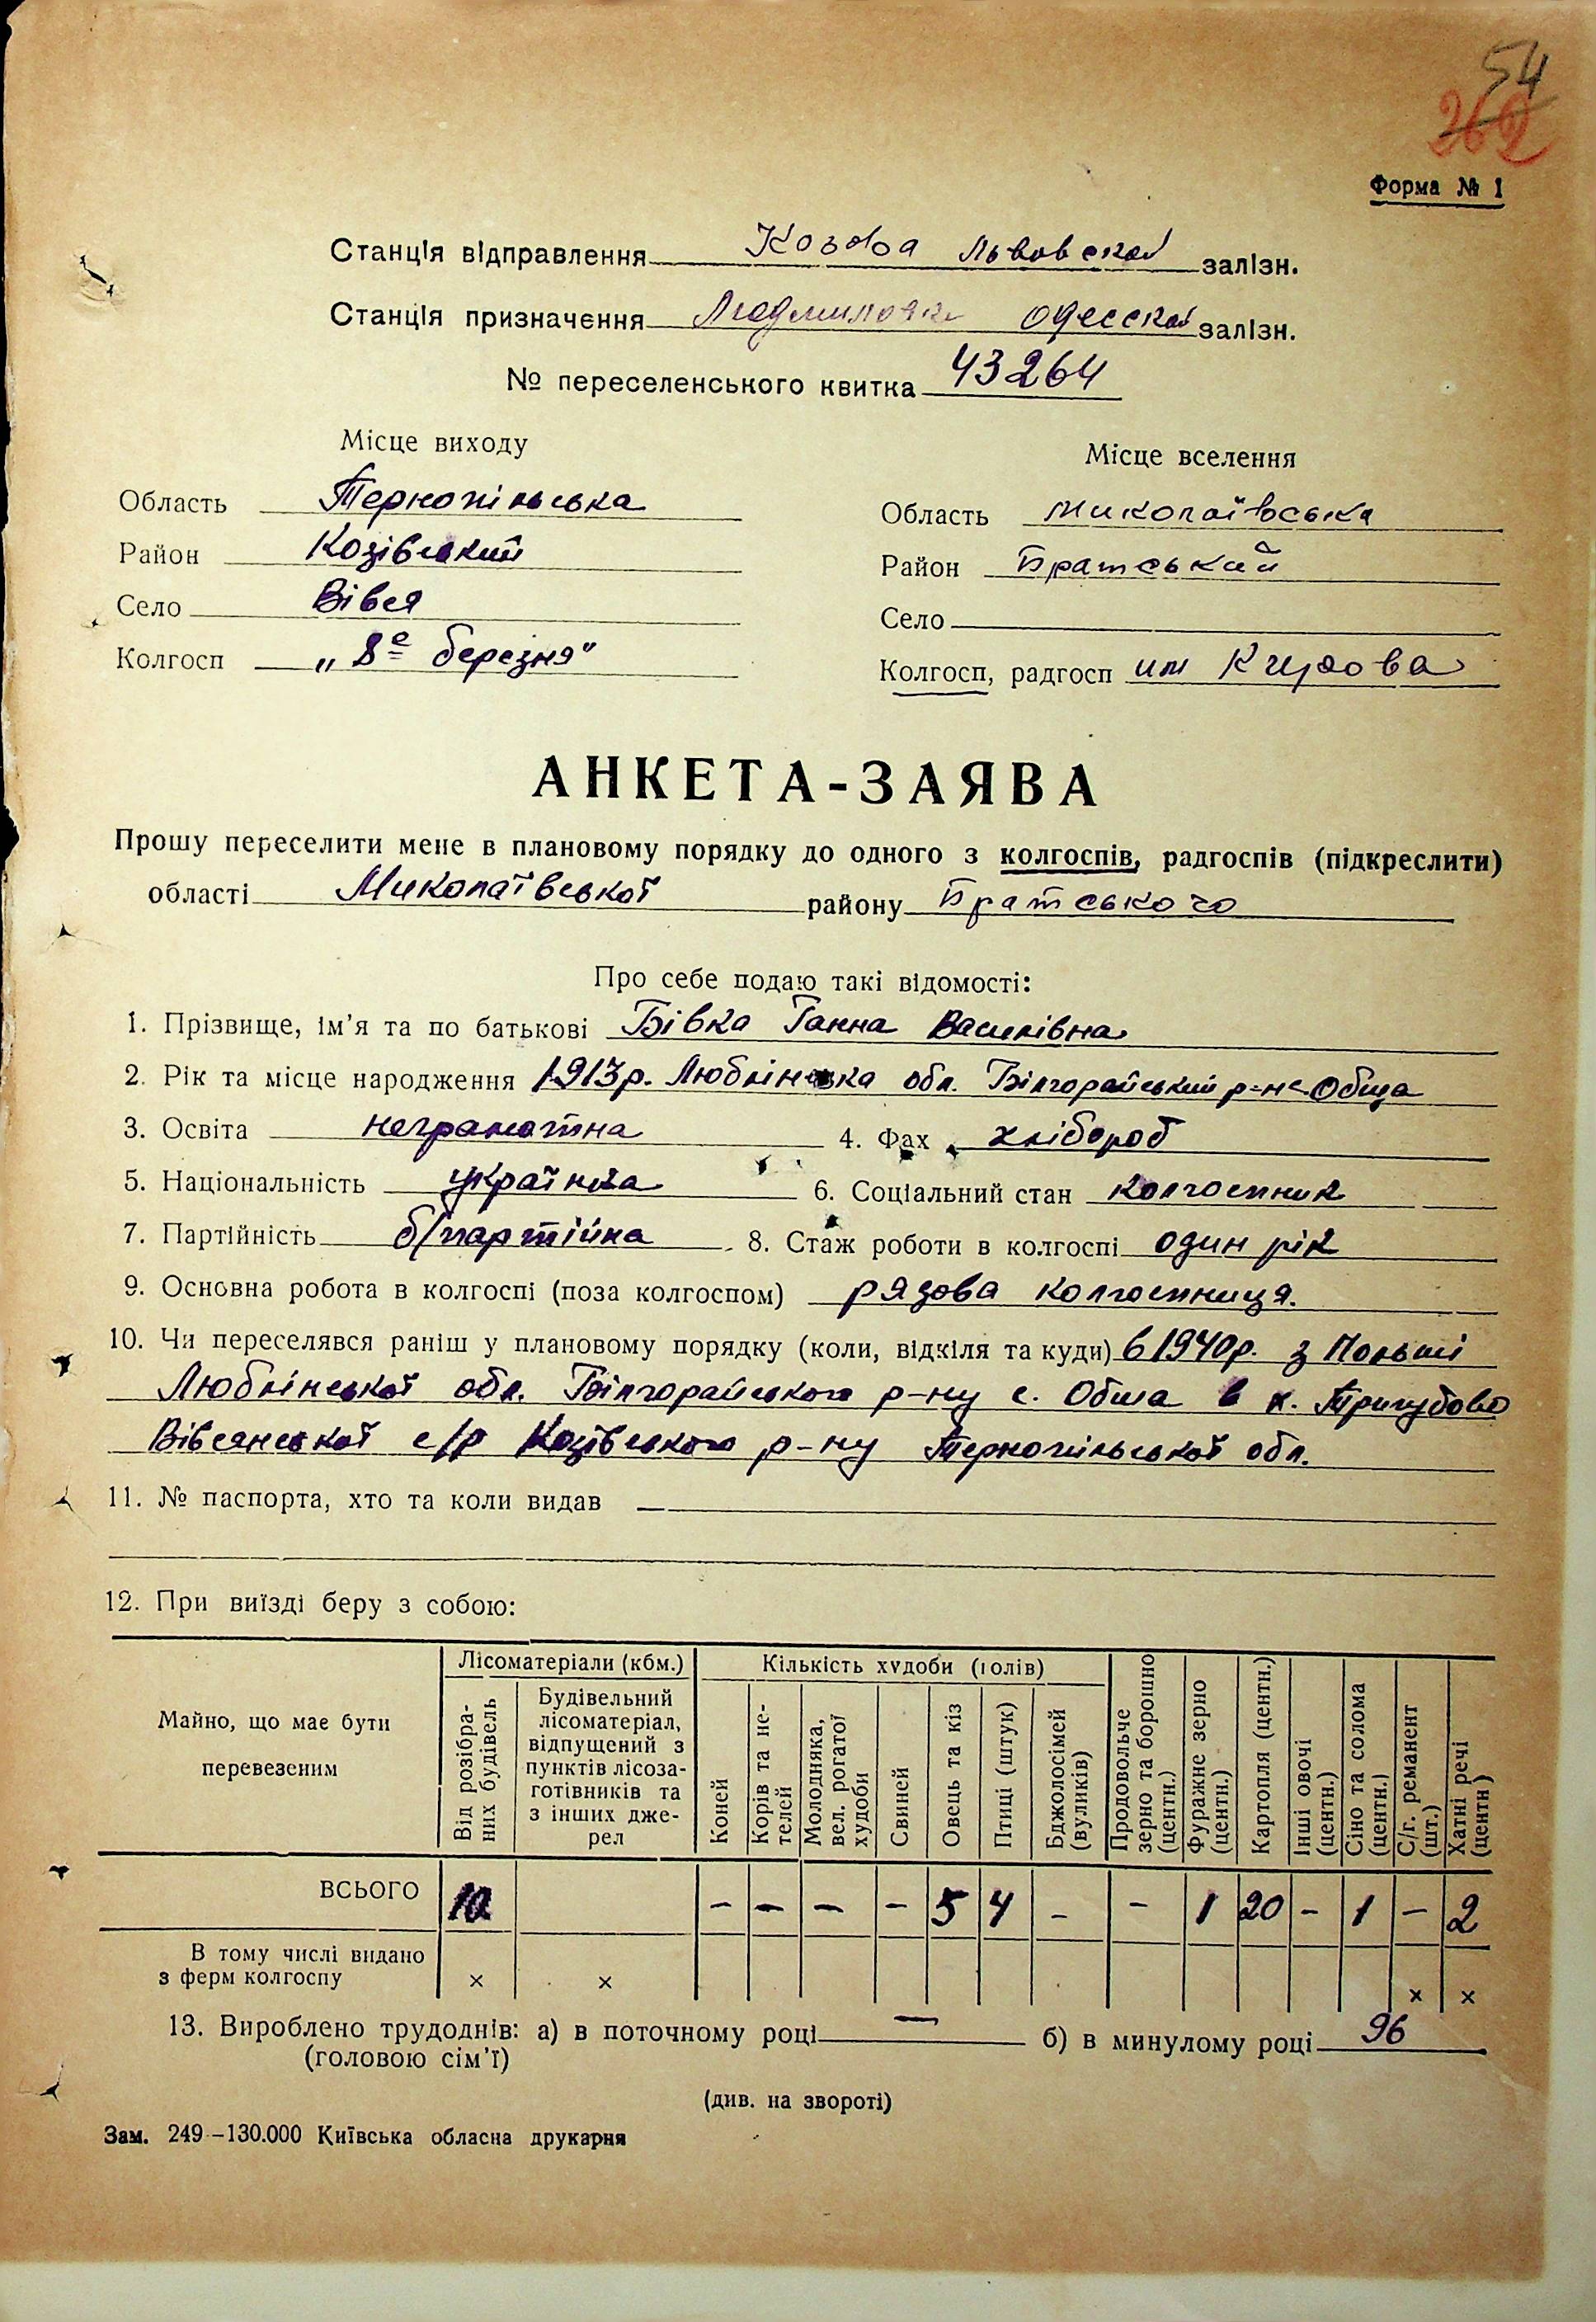 54
262
Форма № 1
Станція відправлення Козова Львовской залізн.
Станція призначення Людмиловка Одесской залізн.
№ переселенського квитка 43264
Місце виходу
Область Тернопільська
Район Козівський
Село Вівся
Колгосп „8е березня"
Місце вселення
Область Миколаївська
Район Братський
Село
Колгосп, радгосп им Кирова
АНКЕТА-ЗАЯВА
Прошу переселити мене в плановому порядку до одного з колгоспів, радгоспів (підкреслити)
області Миколаївської району Братського
Про себе подаю такі відомості:
1. Прізвище, ім'я та по батькові Бівка Ганна Василівна
2. Рік та місце народження 1913р. Люблінська обл. Білгорайський р-н с. Обша
3. Освіта неграмотна 4. Фах хлібороб
5. Національність українка 6. Соціальний стан колгоспник
7. Партійність б/партійна 8. Стаж роботи в колгоспі один рік
9. Основна робота в колгоспі (поза колгоспом) рядова колгоспниця.
10. Чи переселявся раніш у плановому порядку (коли, відкіля та куди) в 1940р. з Польші
Люблінської обл. Білгорайського р-ну с. Обша в х. Тригубово
Вівсянської с/р Козівського р-ну Тернопільської обл.
11. № паспорта, хто та коли видав —
12. При виїзді беру з собою:
Майно, що має бути перевезеним
Лісоматеріали (кбм.)
Від розібраних будівель
Будівельний лісоматеріал, відпущений з пунктів лісозаготівників та з інших джерел
Кількість худоби (голів)
Коней
Корів та нетелей
Молодняка, вел. рогатої худоби
Свиней
Овець та кіз
Птиці (штук)
Бджолосімей (вуликів)
Продовольче зерно та борошно (центн.)
Фуражне зерно (центн.)
Картопля (центн.)
Інші овочі (центн.)
Сіно та солома (центн.)
С/г. реманент (шт.)
Хатні речі (центн)
ВСЬОГО 10 – – – – 5 4 – – 1 20 – 1 – 2
В тому числі видано
з ферм колгоспу × × × ×
13. Вироблено трудоднів: а) в поточному році — б) в минулому році 96
(головою сім'ї)
(див. на звороті)
Зам. 249–130.000 Київська обласна друкарня